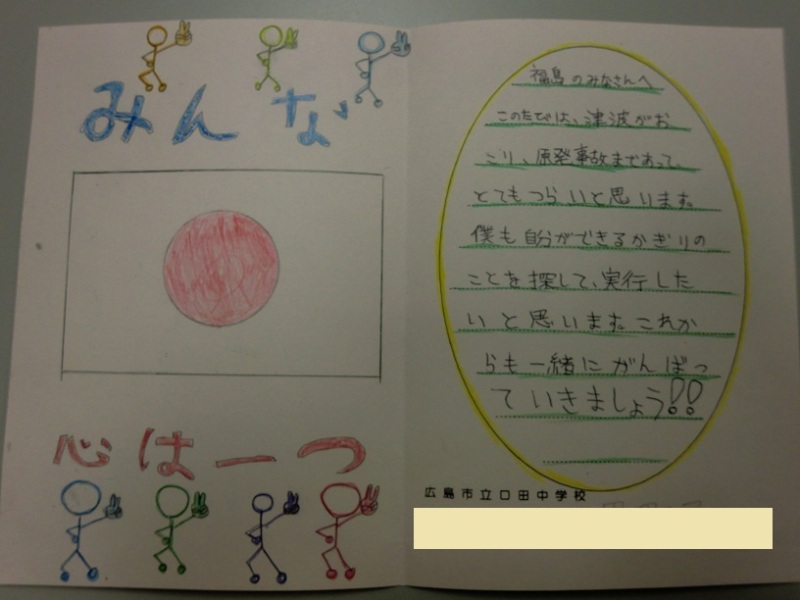 みんな
心は一つ
福島のみなさんへ
このたびは、津波がお
こり、原発事故まであって、
とてもつらいと思います。
僕も自分ができるかぎりの
ことを探して、実行した
いと思います。これか
らも一緒にがんばっ
ていきましょう!!
広島市立口田中学校